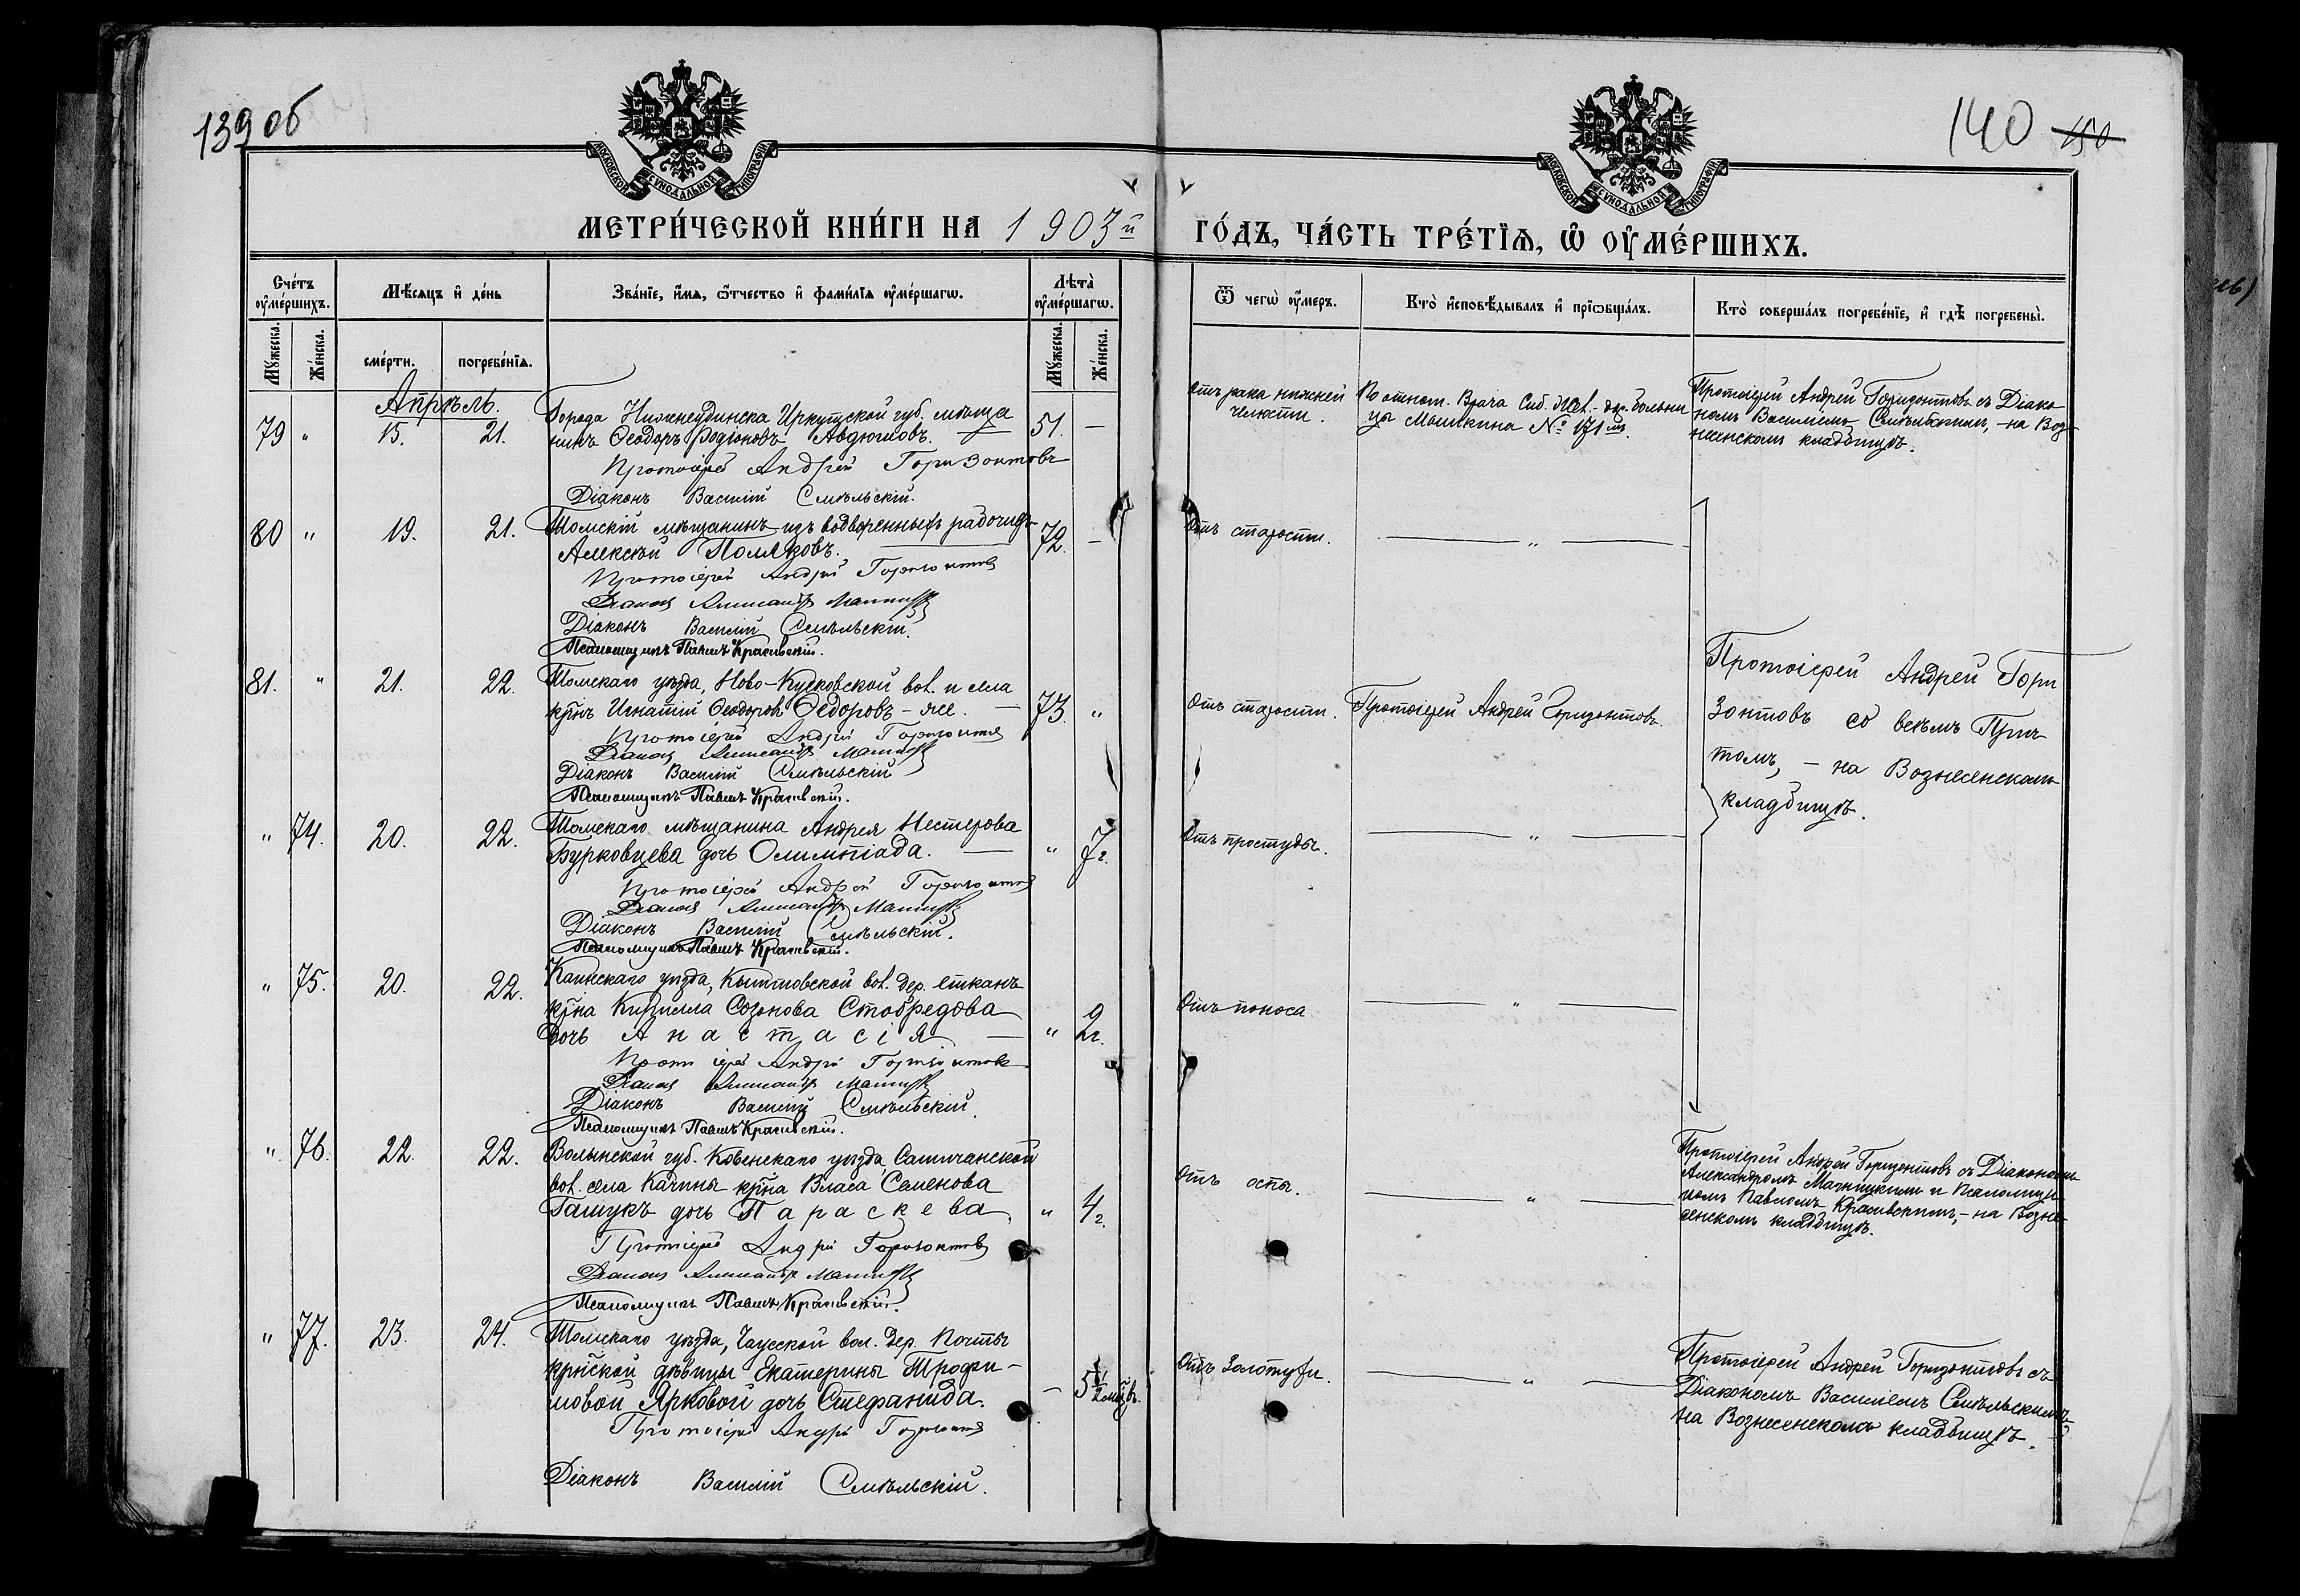 139 об
140 150
МОСКОВСКОЙ СѴНОДАЛЬНОЙ ТИПОГРАФІИ
МОСКОВСКОЙ СѴНОДАЛЬНОЙ ТИПОГРАФІИ
МЕТРИ́ЧЕСКОЙ КНИ́ГИ НА 1903й
ГО́ДЪ, ЧА́СТЬ ТРЕ́ТІѦ, Ѡ҆ ОУ҆МЕ́РШИХЪ.
Сче́тъ оу҆ме́ршихъ.
Мѣ́сяцъ и҆ де́нь
Зва́нїе, и҆́мѧ, ѻ҆́тчество и҆ фами́лїѧ оу҆ме́ршагѡ.
Лѣта̀ оу҆ме́ршагѡ.
Мꙋ́жеска. Же́нска. сме́рти. погребе́нїѧ. Мꙋ́жеска. Же́нска.
Ѿ чегѡ̀ оу҆́меръ.
Кто̀ и҆сповѣ́дывалъ и҆ прїѡбща́лъ.
Кто̀ соверша́лъ погребе́нїе, и҆ гдѣ̀ погребены̀.
Апрѣль.
79 " 15. 21. Города Нижнеудинска Иркутской губ. мѣща
нинъ Ѳеодоръ Родіоновъ Авдюшовъ. — 51. —
Протоіерей Андрей Горизонтовъ
Діаконъ Василій Смѣльскій.
Отъ рака нижней
челюсти.
По отнош. Врача Сиб. жел.-дор. больни
цы Машкина № 171
Протоіерей Андрей Горизонтовъ съ Діако
номъ Василіемъ Смѣльскимъ, – на Воз
несенскомъ кладбищѣ.
80 " 19. 21. Томскій мѣщанинъ изъ водворенныхъ рабочихъ
Алексѣй Поляковъ. — 72. —
Протоіерей Андрей Горизонтовъ
Діаконъ Александръ
Діаконъ Василій Смѣльскій.
Псаломщикъ Павелъ Красивскій.
Отъ старости. — " —
81. " 21. 22. Томскаго уѣзда, Ново-Кусковской вол. и села
крнъ Игнатій Ѳеодоровъ Ѳедоровъ – же. — 73. "
Протоіерей Андрей Горизонтовъ
Діаконъ Александръ
Діаконъ Василій Смѣльскій
Псаломщикъ Павелъ Красивскій.
Отъ старости. Протоіерей Андрей Горизонтовъ.
Протоіерей Андрей Гори
зонтовъ со всѣмъ Прич
томъ, – на Вознесенскомъ
кладбищѣ.
" 74. 20. 22. Томскаго мѣщанина Андрея Нестерова
Бурковцева дочь Олимпіада. — " 7 г.
Протоіерей Андрей Горизонтовъ
Діаконъ Александръ
Діаконъ Василій Смѣльскій.
Псаломщикъ Павелъ Красивскій.
Отъ простуды. — " —
" 75. 20. 22. Каинскаго уѣзда, Кыштовской вол. дер.
крна Кирилла Созонова
дочь Анастасія — " 2 г.
Протоіерей Андрей Горизонтовъ
Діаконъ Александръ
Діаконъ Василій Смѣльскій.
Псаломщикъ Павелъ Красивскій.
Отъ поноса — " —
" 76. 22. 22. Волынской губ. Ковенскаго уѣзда,
вол. села Качины крна Власа Семенова
Гашукъ дочь Параскева. " 4 г.
Протоіерей Андрей Горизонтовъ
Діаконъ Александръ
Псаломщикъ Павелъ Красивскій.
Отъ оспы. — " —
Протоіерей Андрей Горизонтовъ съ Діакономъ
Александромъ и Псаломщи
комъ Павломъ Красивскимъ, – на Возне
сенскомъ кладбищѣ.
" 77. 23. 24. Томскаго уѣзда, Чаусской вол. дер. Почты
крнской дѣвицы Екатерины Трофи-
мовой Ярковой дочь Стефанида. — 5 1/2 мѣсяцевъ.
Протоіерей Андрей Горизонтовъ
Діаконъ Василій Смѣльскій.
Отъ золотухи. — " —
Протоіерей Андрей Горизонтовъ съ
Діакономъ Василіемъ Смѣльскимъ –
на Вознесенскомъ кладбищѣ.